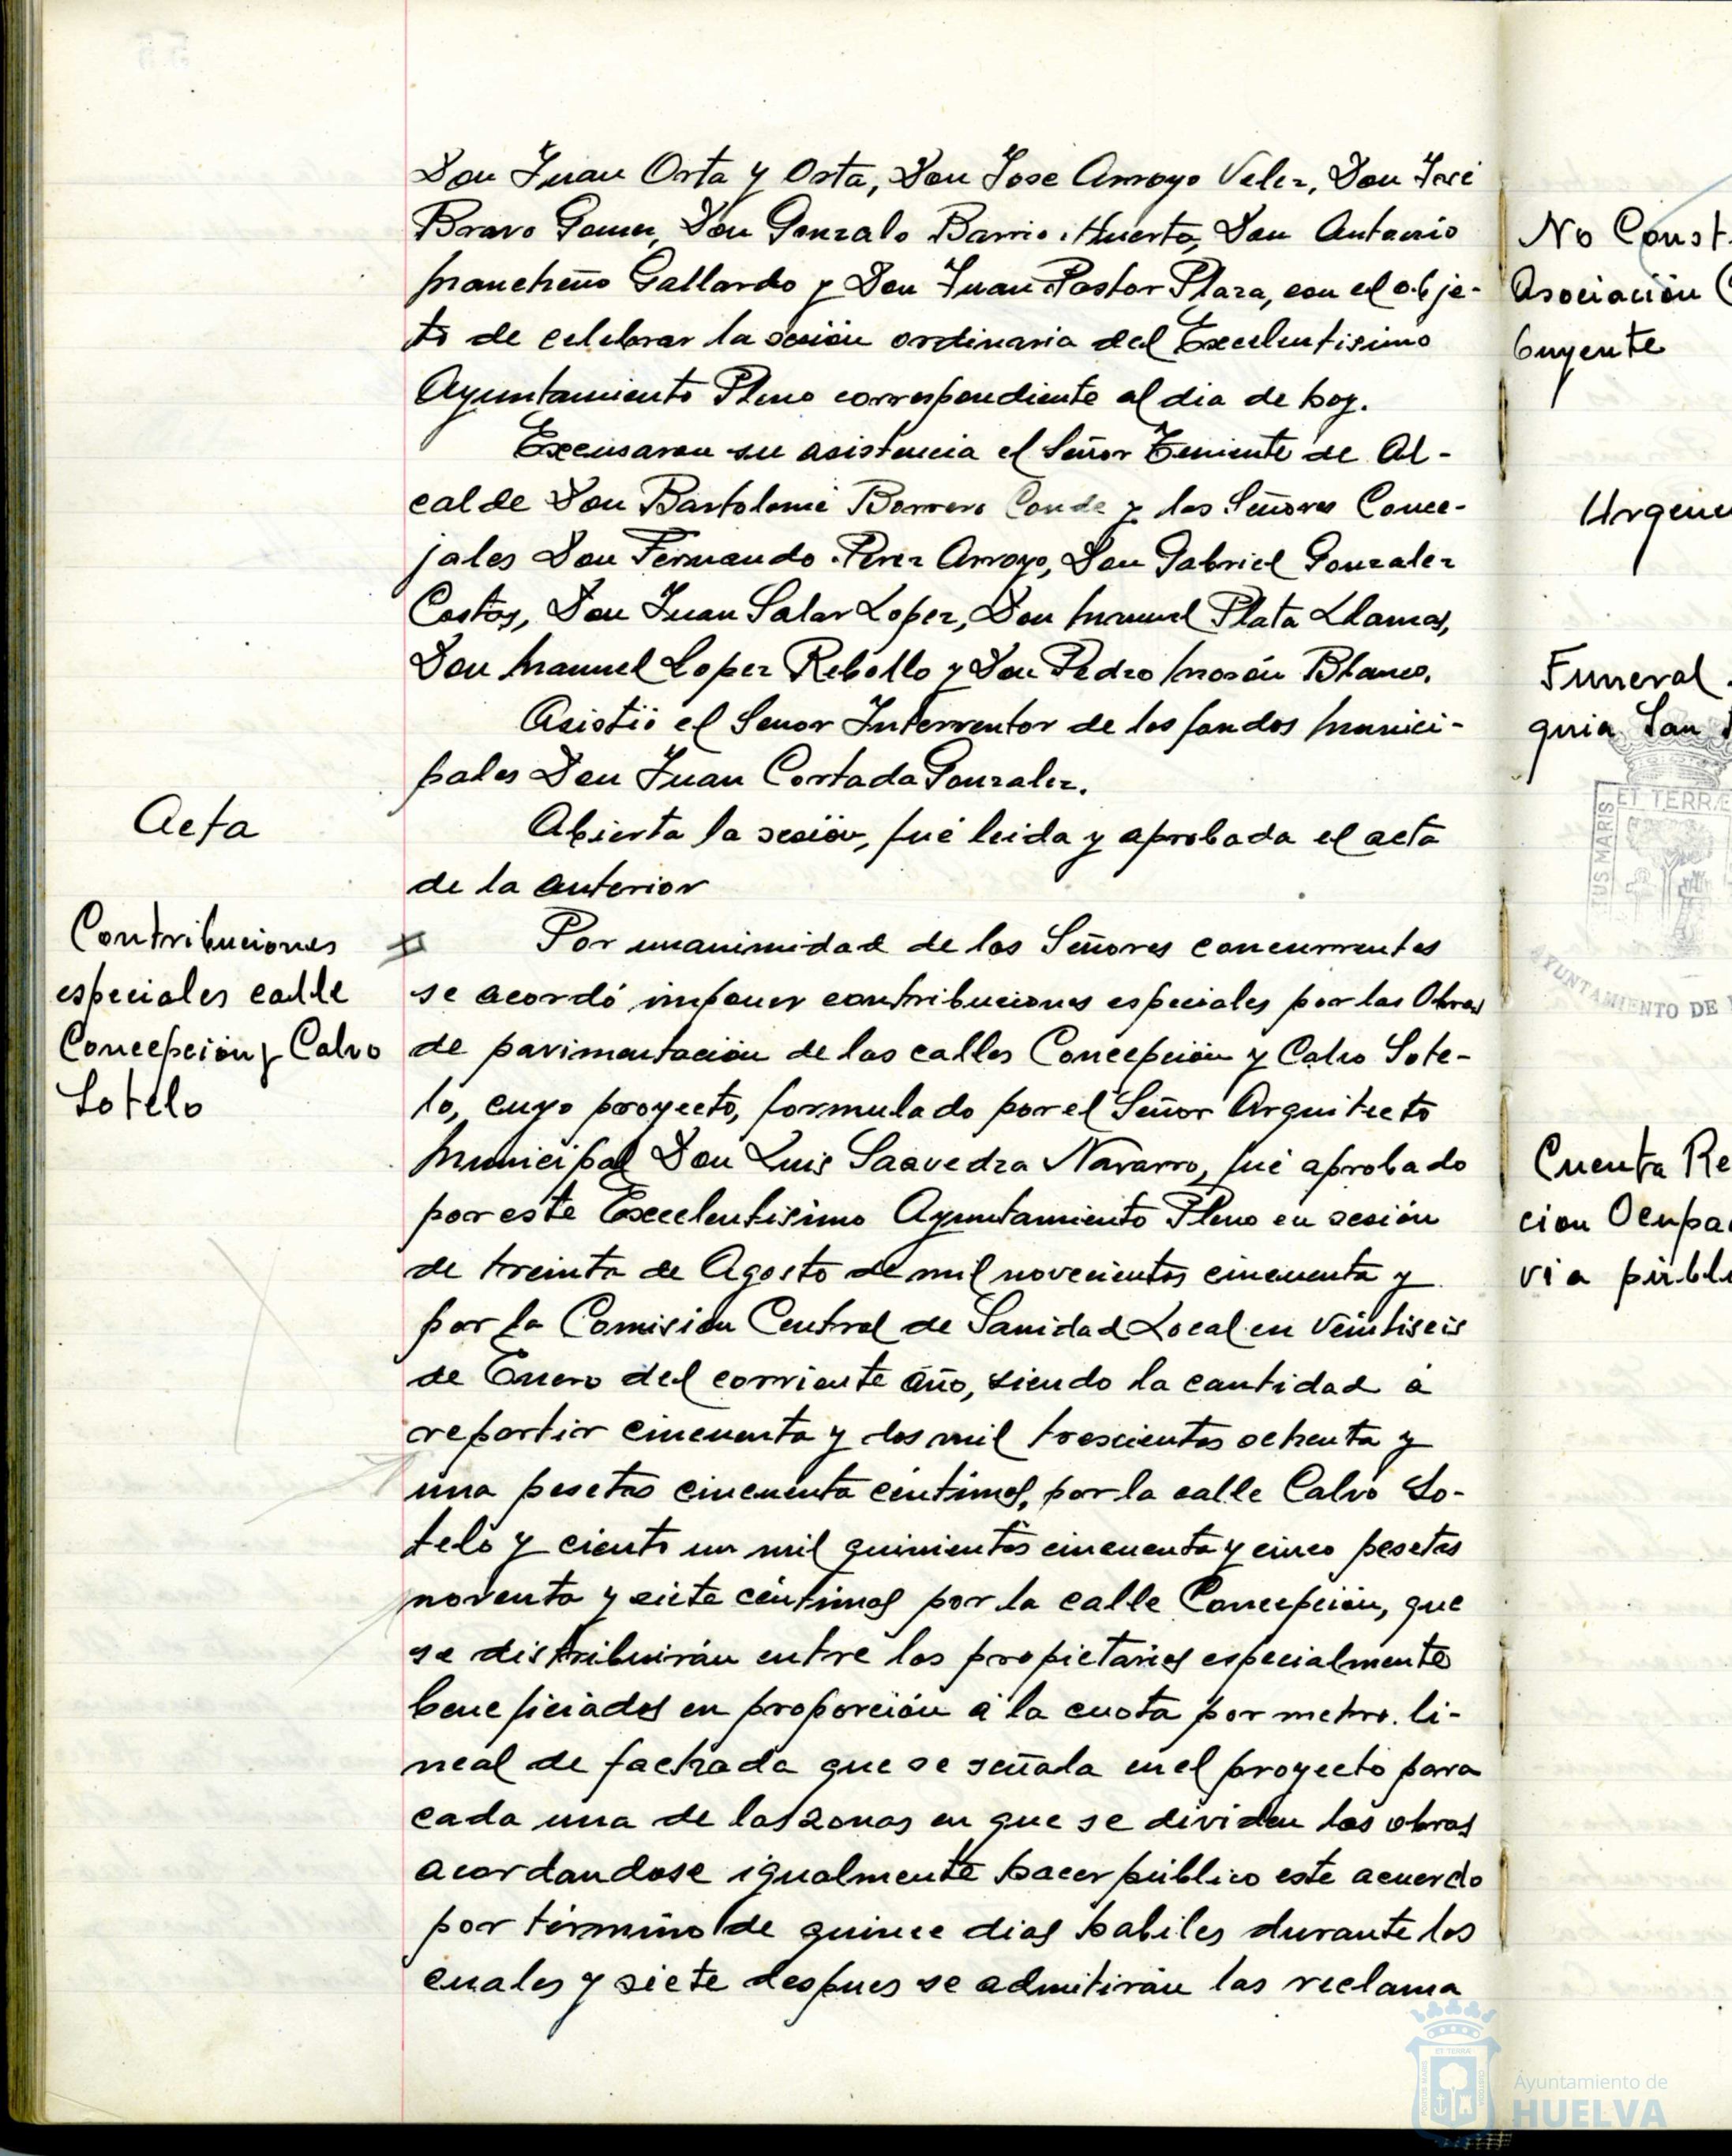 Don Juan Orta y Orta, Don Jose Arroyo Velez, Don José
Bravo Gomez, Don Gonzalo Barrio Huerta, Don Antonio
Mancheño Gallardo y Don Juan Pastor Plaza, con el obje-
to de celebrar la sesión ordinaria del Excelentisimo
Ayuntamiento Pleno correspondiente al dia de hoy.
Excusaron su asistencia el Señor Teniente de Al-
calde Don Bartolomé Borrero Conde y los Señores Conce-
jales Don Fernando Perez Arroyo, Don Gabriel Gonzalez
Costas, Don Juan Salar Lopez, Don Manuel Plata Llamas,
Don Manuel Lopez Rebollo y Don Pedro Morón Blanco.
Asistió el Senor Interventor de los fondos Munici-
pales Don Juan Cortada Gonzalez.
Acta
Abierta la sesión, fué leida y aprobada el acta
de la anterior
Contribuciones
especiales calle
Concepción y Calvo
Sotelo
Por unanimidad de los Señores concurrentes
se acordó imponer contribuciones especiales por las Obras
de pavimentación de las calles Concepción y Calvo Sote-
lo, cuyo proyecto, formulado por el Señor Arquitecto
Municipal Don Luis Saavedra Navarro, fué aprobado
por este Excelentisimo Ayuntamiento Pleno en sesión
de treinta de Agosto de mil novecientos cincuenta y
por la Comisión Central de Sanidad Local en veintiseis
de Enero del corriente año, siendo la cantidad á
repartir cincuenta y dos mil trescientas ochenta y
una pesetas cincuenta céntimos, por la calle Calvo So-
telo y ciento un mil quinientas cincuenta y cinco pesetas
noventa y siete céntimos por la calle Concepción, que
se distribuirán entre los propietarios especialmente
beneficiados en proporción á la cuota por metro li-
neal de fachada que se señala en el proyecto para
cada una de las zonas en que se dividen las obras
acordandose igualmente hacer público este acuerdo
por término de quince dias habiles durante los
cuales y siete despues se admitirán las reclama
No Const.
Asociación C
buyente
Urgenc
Funeral
quia San
ET TERRÆ
US MARIS
AYUNTAMIENTO DE
Cuenta Re
cion Ocupa
via públi
Ayuntamiento de
HUELVA